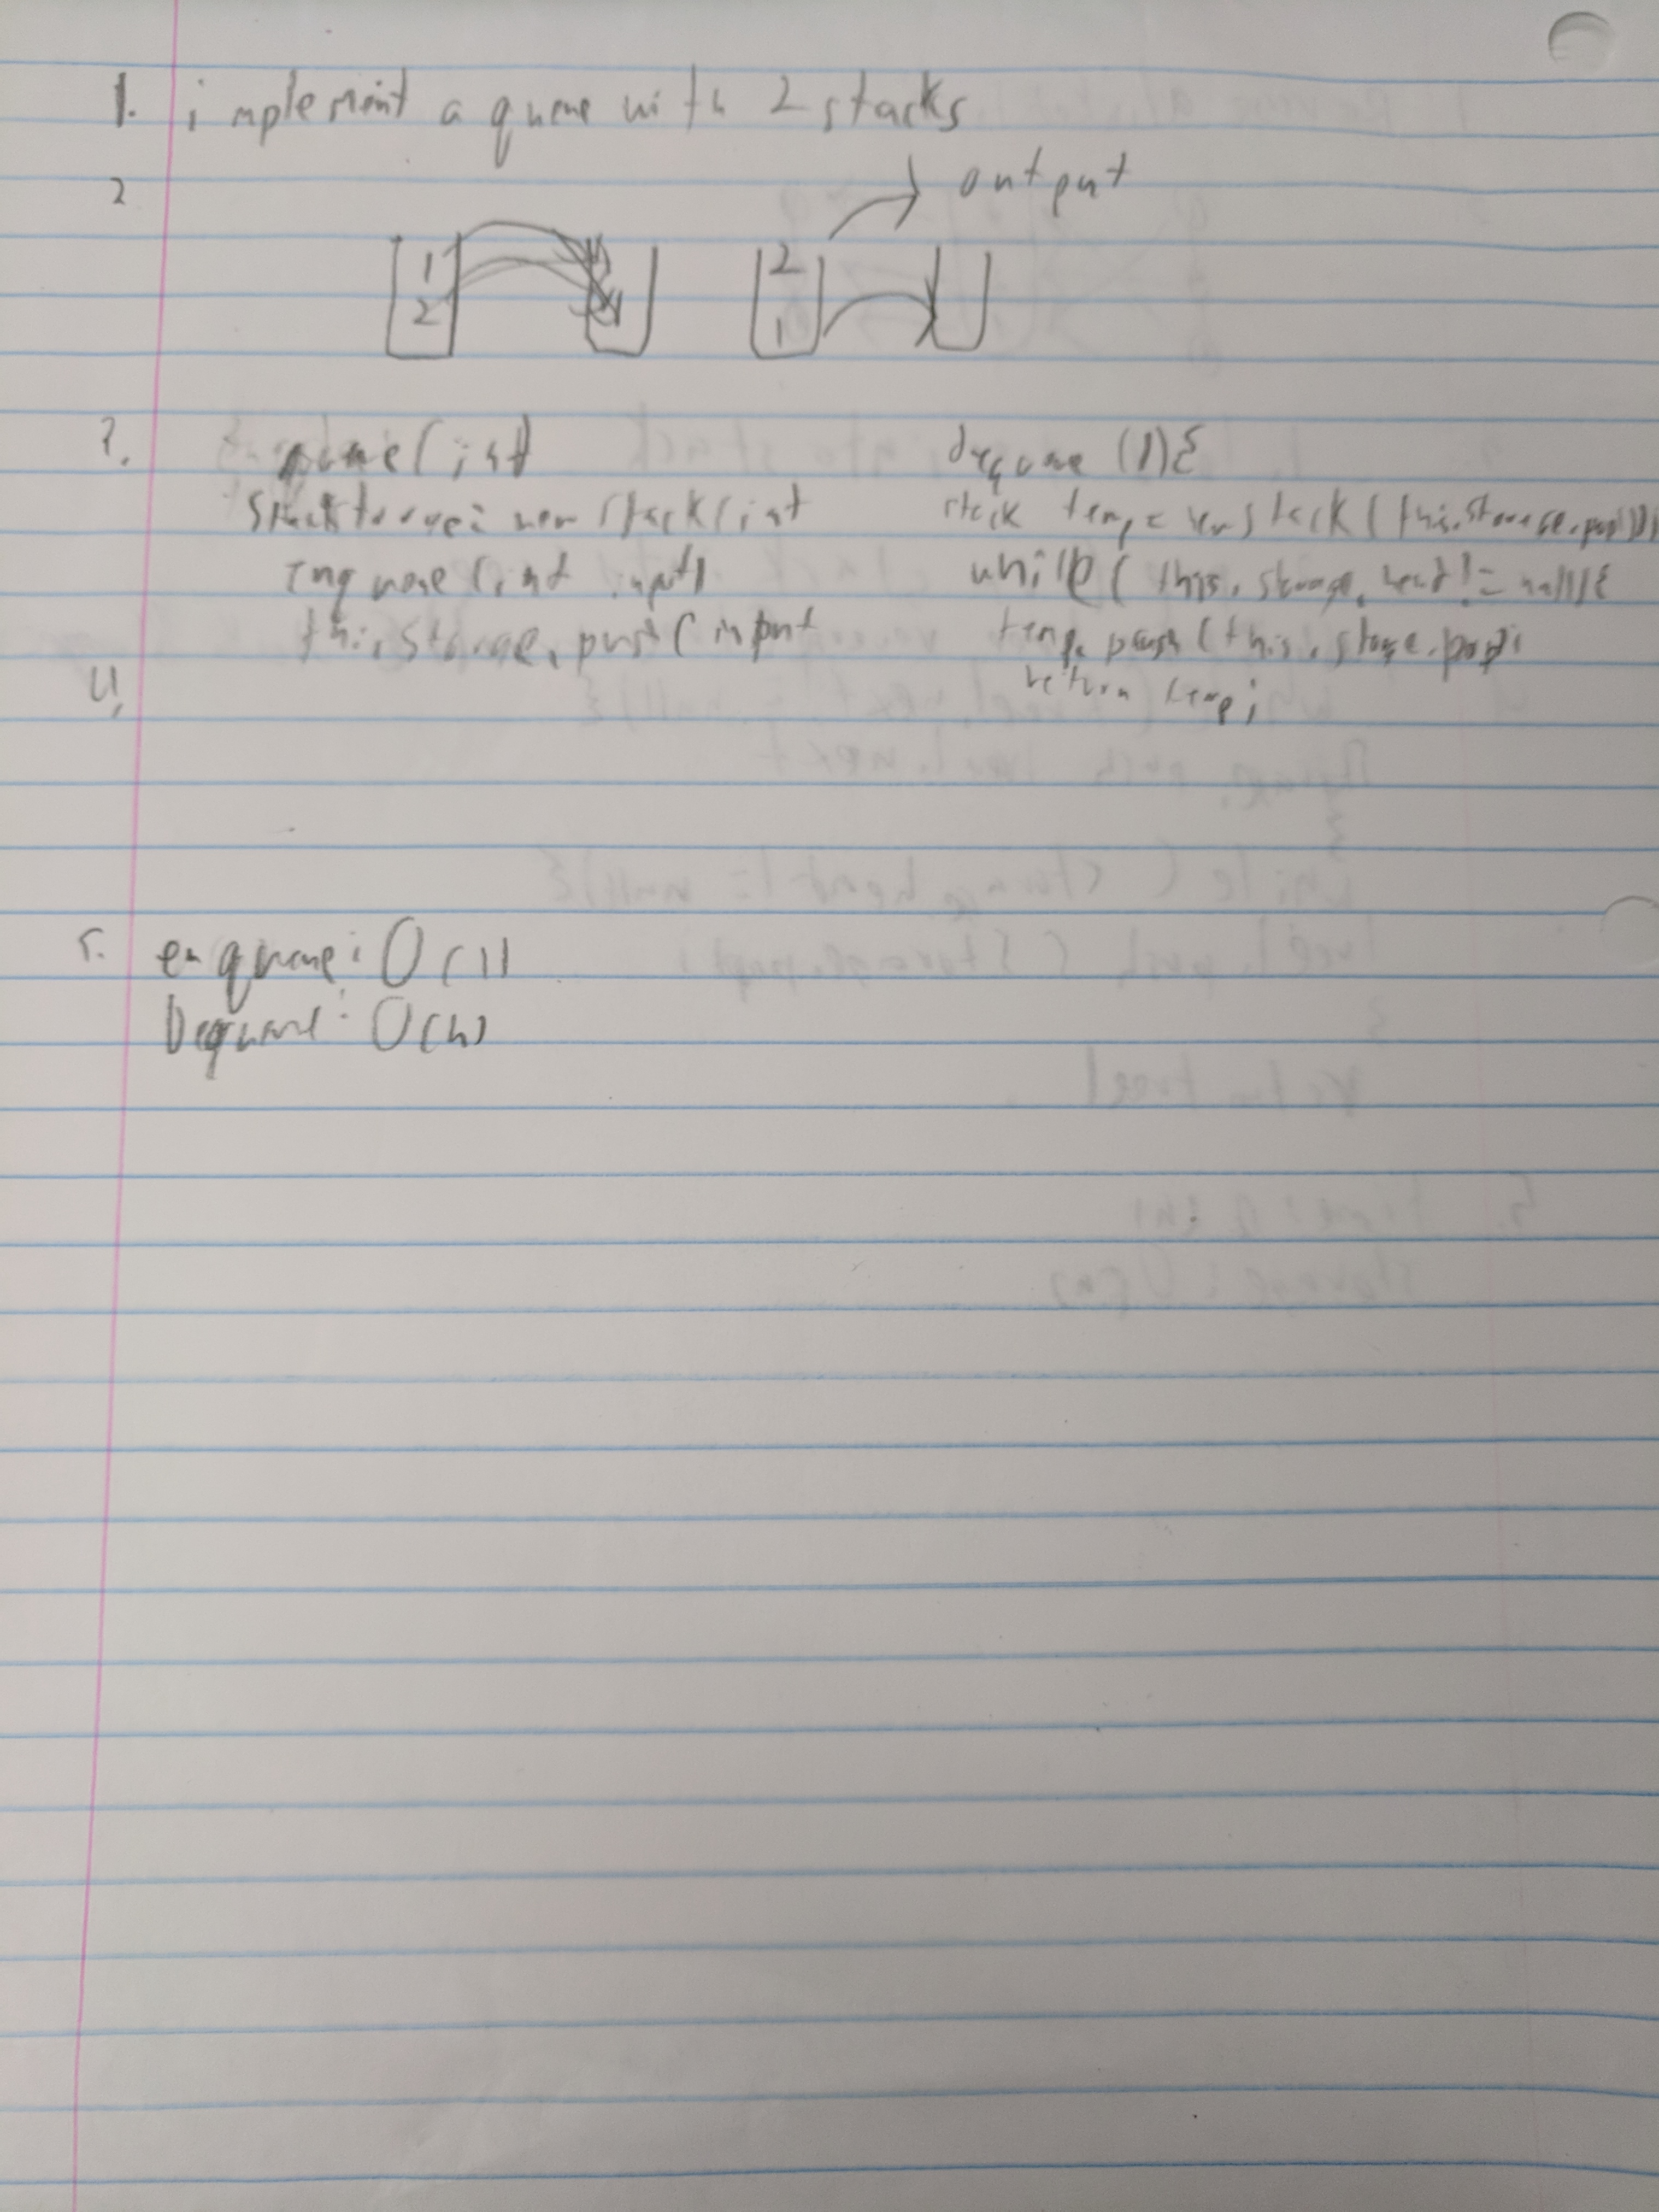 1. implement a queue with 2 stacks
2
output
1
2
2
1
queue(int
Stack storage: new stack(int
Enqueue(int input)
this.storage.push(input
dequeue(1){
stack temp = new stack(this.storage.pop()))
while(this.storage.head != null){
temp.push(this.storage.pop);
return temp;
4.
5. enqueue: O(1)
Dequeue: O(n)